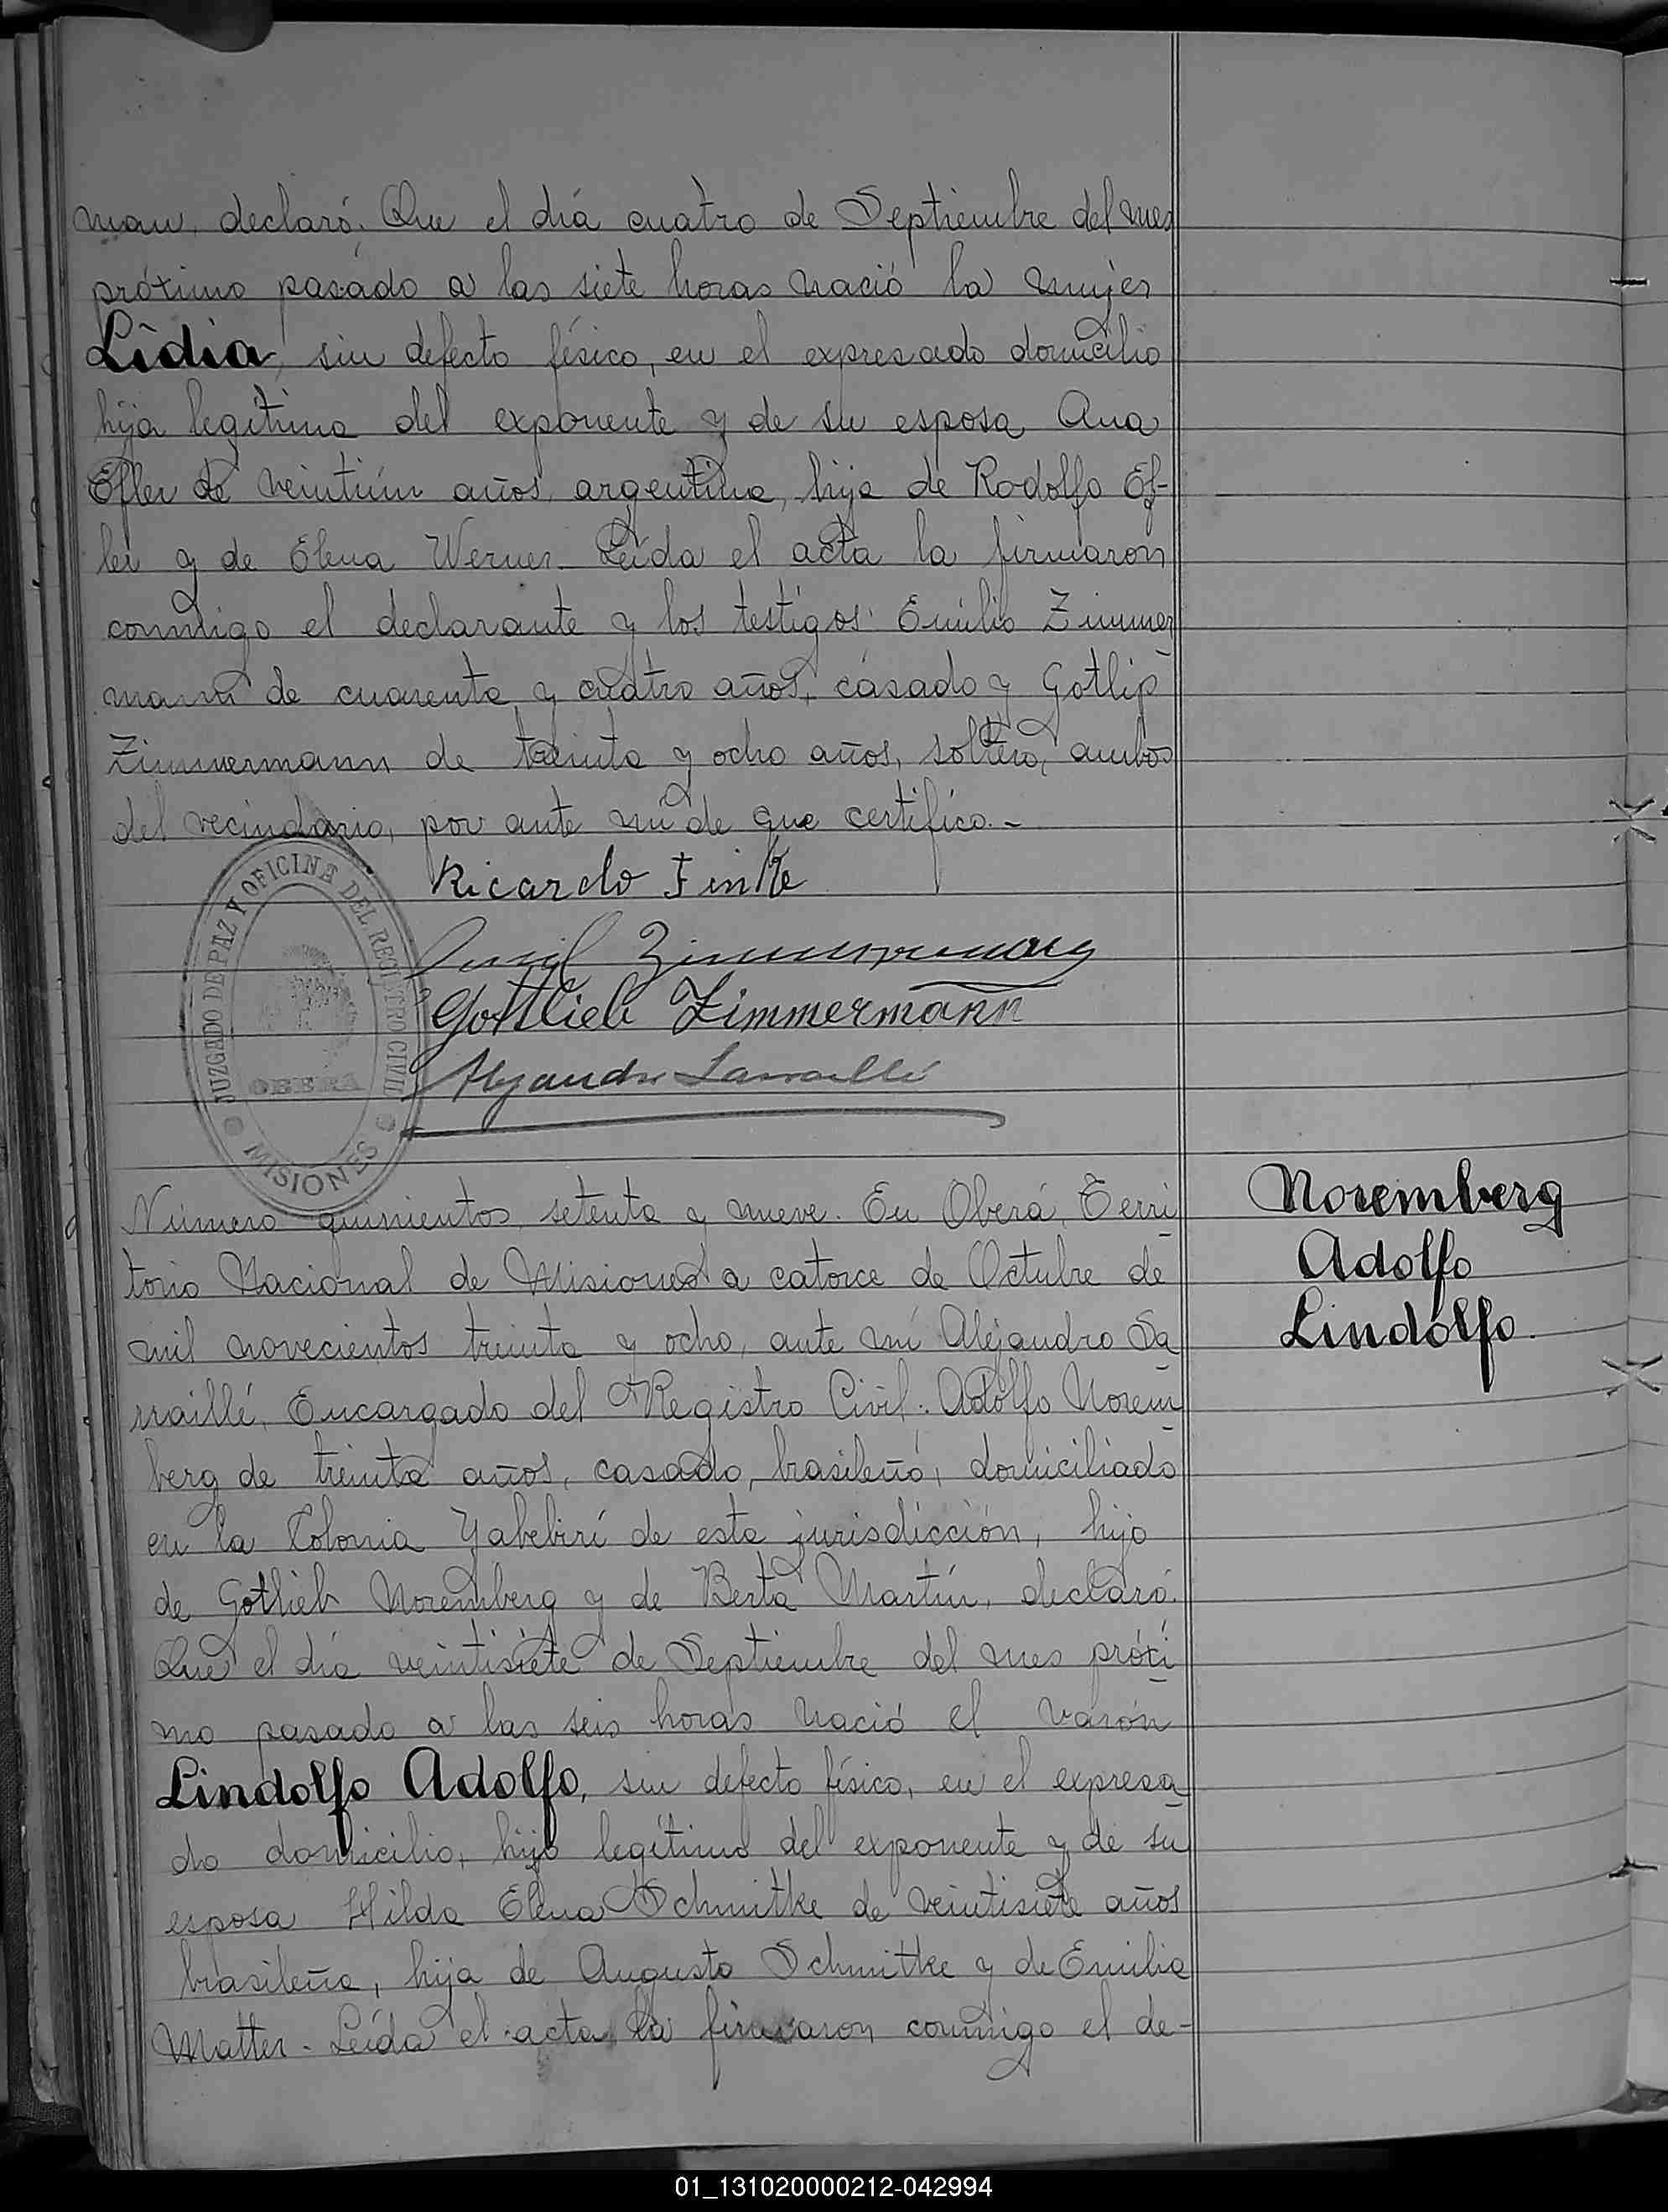 man, declaró: Que el día cuatro de Septiembre del mes
próximo pasado a las siete horas nació la mujer
Lidia, sin defecto físico, en el expresado domicilio
hija legítima del exponente y de su esposa Ana
Efler de veintiún años, argentina, hija de Rodolfo Ef-
ler y de Elena Werner. Leída el acta la firmaron
conmigo el declarante y los testigos: Emilio Zimmer
mann de cuarenta y cuatro años, casado y Gotlip
Zimmermann de treinta y ocho años, soltero, ambos
del vecindario, por ante mí de que certifico.-
Ricardo Finke
Emil Zimmermann
Gottlieb Zimmermann
Alejandro Sarraillé
JUZGADO DE PAZ Y OFICINA DEL REGISTRO CIVIL
OBERA
MISIONES
Número quinientos setenta y nueve. En Oberá, Terri
torio Nacional de Misiones a catorce de Octubre de
mil novecientos treinta y ocho, ante mí Alejandro Sa
rraillé, Encargado del Registro Civil: Adolfo Norem
berg de treinta años, casado, brasileño, domiciliado
en la Colonia Yabebirí de esta jurisdicción, hijo
de Gotlieb Noremberg y de Berta Martín, declaró:
Que el día veintisiete de Septiembre del mes próxi
mo pasado a las seis horas nació el varón
Lindolfo Adolfo, sin defecto físico, en el expresa
do domicilio, hijo legítimo del exponente y de su
esposa Hilda Elena Schmitke de veintisiete años
brasileña, hija de Augusto Schmitke y de Emilia
Matter. Leída el acta la firmaron conmigo el de-
Noremberg
Adolfo
Lindolfo.
01_131020000212-042994